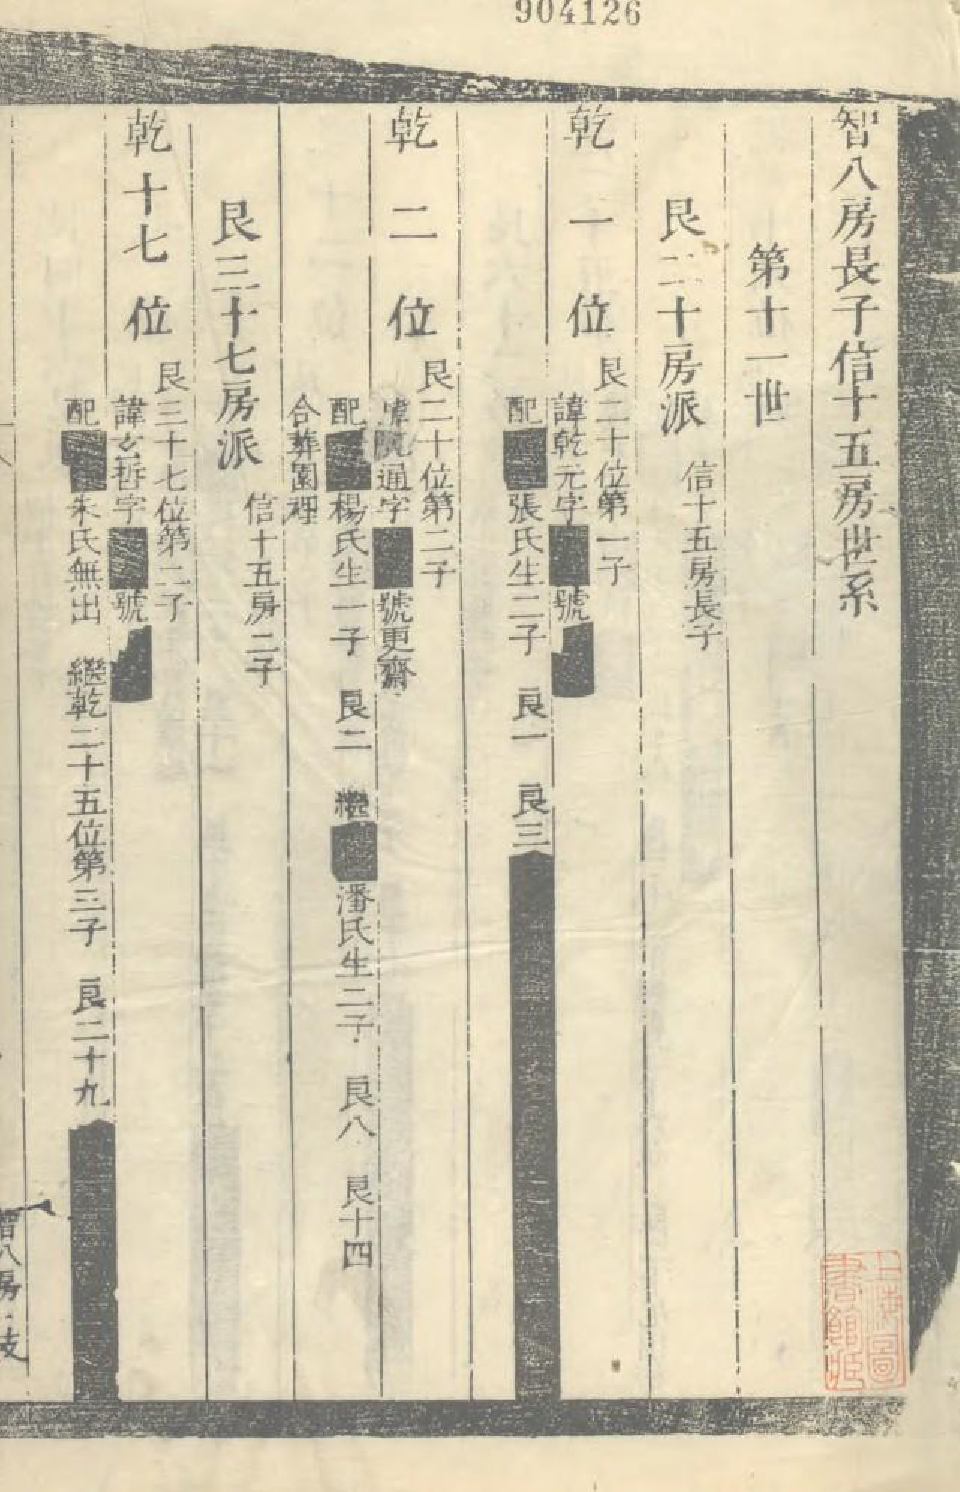 904126
智八房長子信十五房世系
第十一世
艮二十房派 信十五房長子
乾一位
艮二十位第一子
諱乾元字 號
配 張氏生二子 良一 良三
乾二位
艮二十位第二子
通字 號更齋
配 楊氏生一子 良二 繼 潘氏生二子 良八 良十四
合葬園裡
艮三十七房派 信十五房二子
乾十七位
艮三十七位第二子
諱玄哲字 號
配 朱氏無出 繼乾二十五位第三子 良二十九
智八房 支
上海圖書館藏